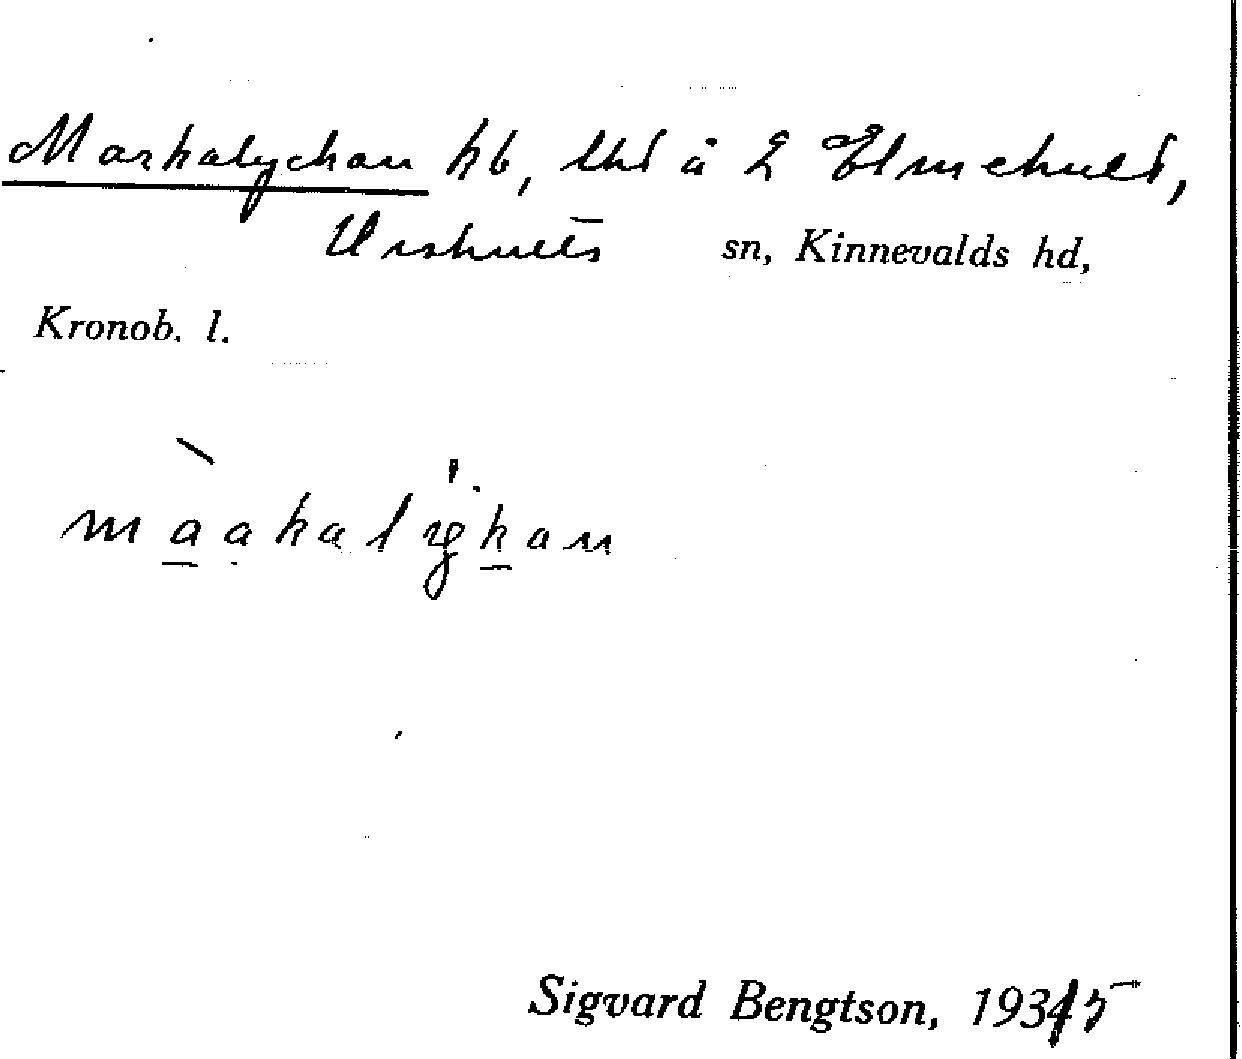 Markalyckan hb, lht å 2 Elmehult,
Urshults sn, Kinnevalds hd,
Kronob. l.
màakalykan
Sigvard Bengtson, 1935